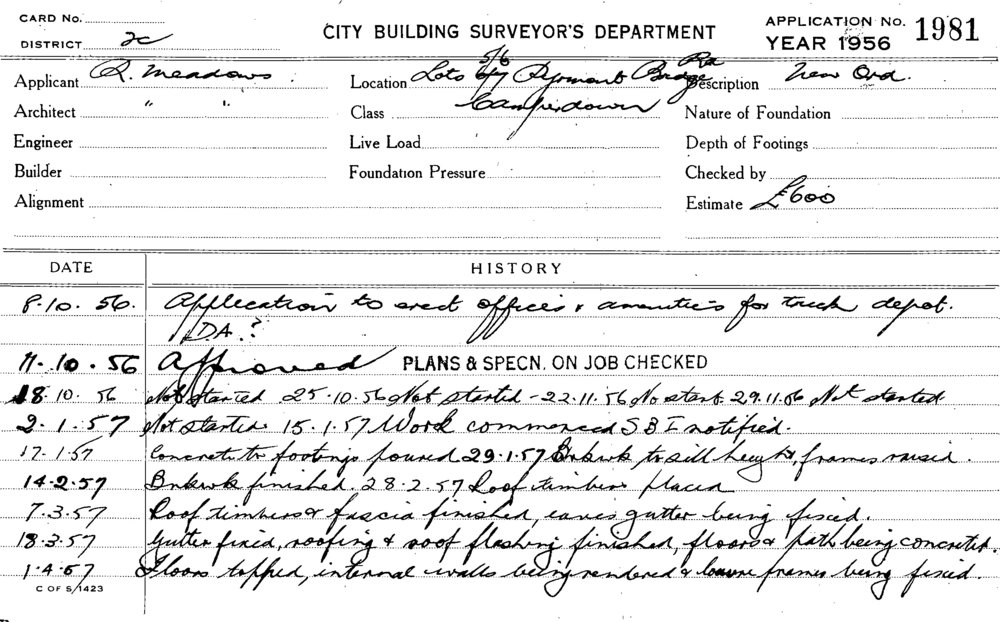 CARD No.
DISTRICT 2c
CITY BUILDING SURVEYOR'S DEPARTMENT
APPLICATION No. 1981
YEAR 1956
Applicant R. Meadows
Location Lots 5/6 Pyrmont Bridge Rd
Description New Ord.
Architect " "
Class Camperdown
Nature of Foundation
Engineer
Live Load
Depth of Footings
Builder
Foundation Pressure
Checked by
Alignment
Estimate £600
DATE HISTORY
8.10.56. Application to erect offices & amenities for truck depot.
D.A.?
11.10.56 Approved PLANS & SPECN. ON JOB CHECKED
18.10.56 Not started 25.10.56 Not started - 22.11.56 No start 29.11.56 Not started
2.1.57 Not started 15.1.57 Work commenced S B I notified.
17.1.57 Concrete to footings poured 29.1.57 Brkwk to sill height, frames raised.
14.2.57 Brkwk finished. 28.2.57 Roof timbers placed
7.3.57 Roof timbers & fascia finished, eaves gutter being fixed.
18.3.57 Gutter fixed, roofing & roof flashing finished, floors & path being concreted.
1.4.57 Floors topped, internal walls being rendered & louvre frames being fixed.
C OF S/1423